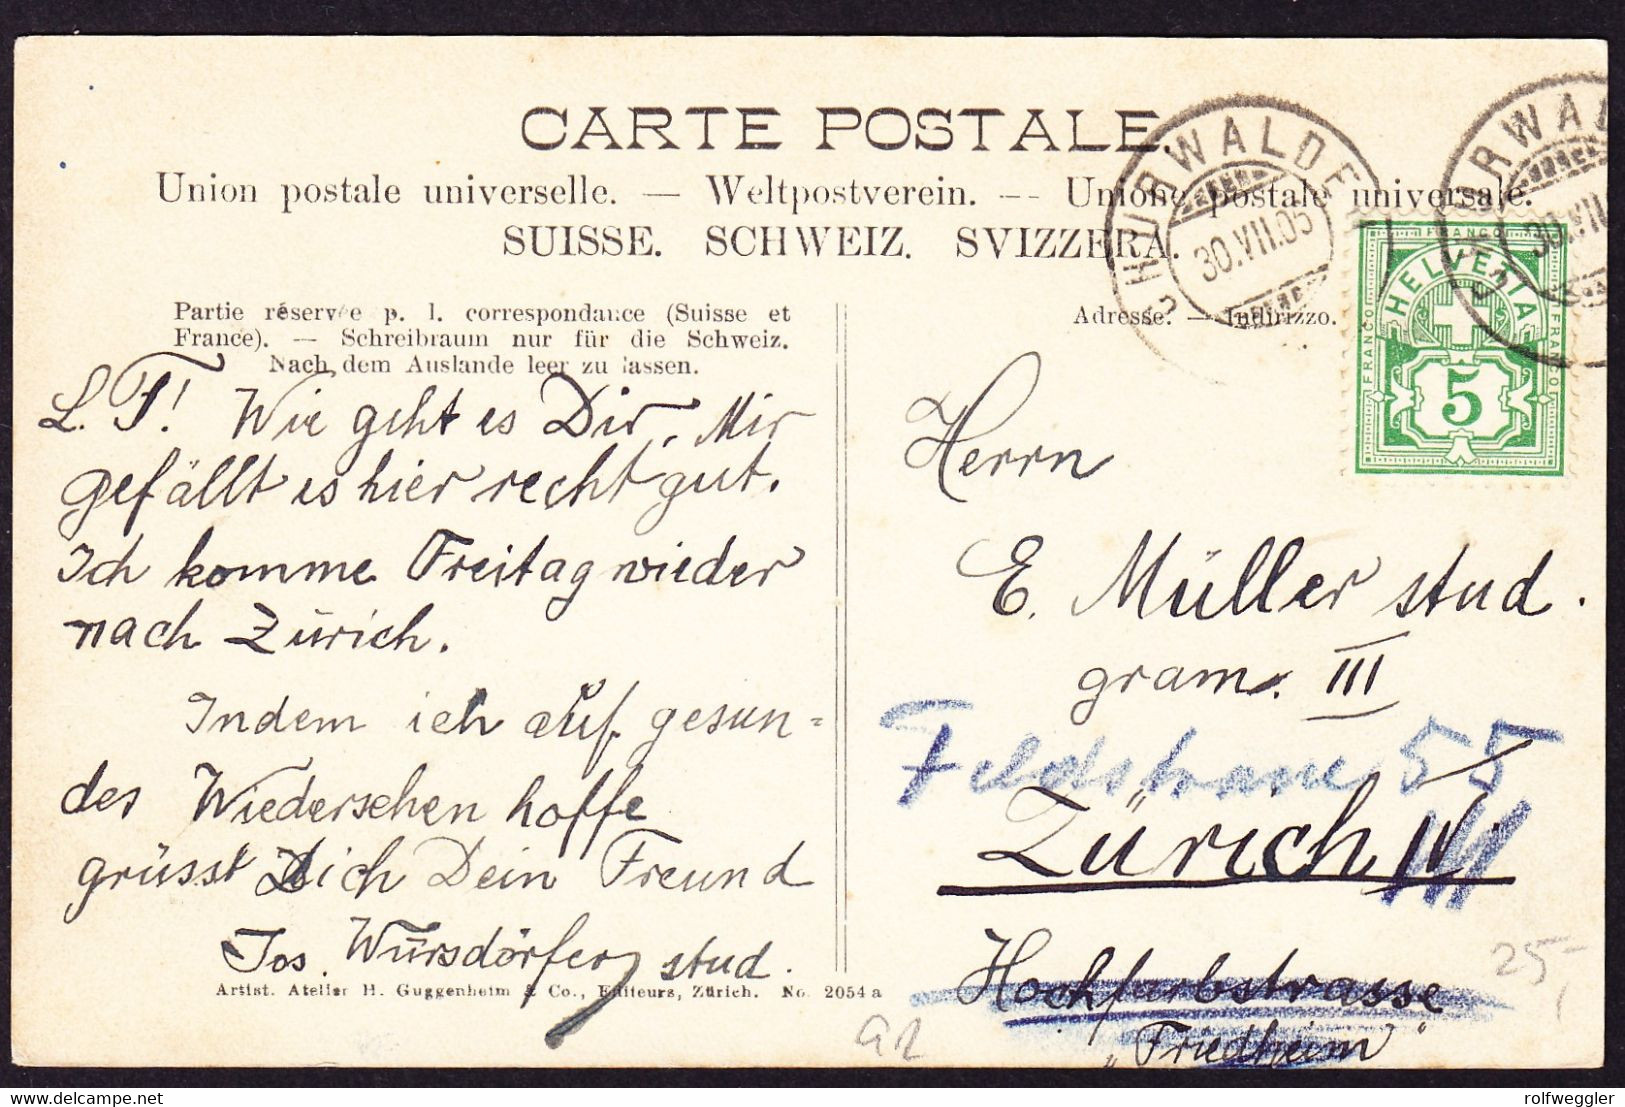 CARTE POSTALE.
Union postale universelle. — Weltpostverein. — Unione postale universale.
SUISSE. SCHWEIZ. SVIZZERA.
CHURWALDEN
30.VII.05
CHURWALD
30.VII
Partie réservée p. l. correspondance (Suisse et
France). — Schreibraum nur für die Schweiz.
Nach dem Auslande leer zu lassen.
Adresse. — Indirizzo.
FRANCO
HELVETIA
FRANCO
FRANCO
5
L. F! Wie geht es Dir, Mir
gefällt es hier recht gut.
Ich komme Freitag wieder
nach Zürich.
Indem ich auf gesun=
des Wiedersehen hoffe
grüsst Dich Dein Freund
Jos. Würsdörfer, stud.
Artist. Atelier H. Guggenheim & Co., Editeurs, Zürich. No. 2054 a
Herrn
E. Müller stud.
gram. III
Feldstrasse 55
Zürich IV.
III
Hochfarbstrasse
„Friedheim"
25,-
92
rolfweggler